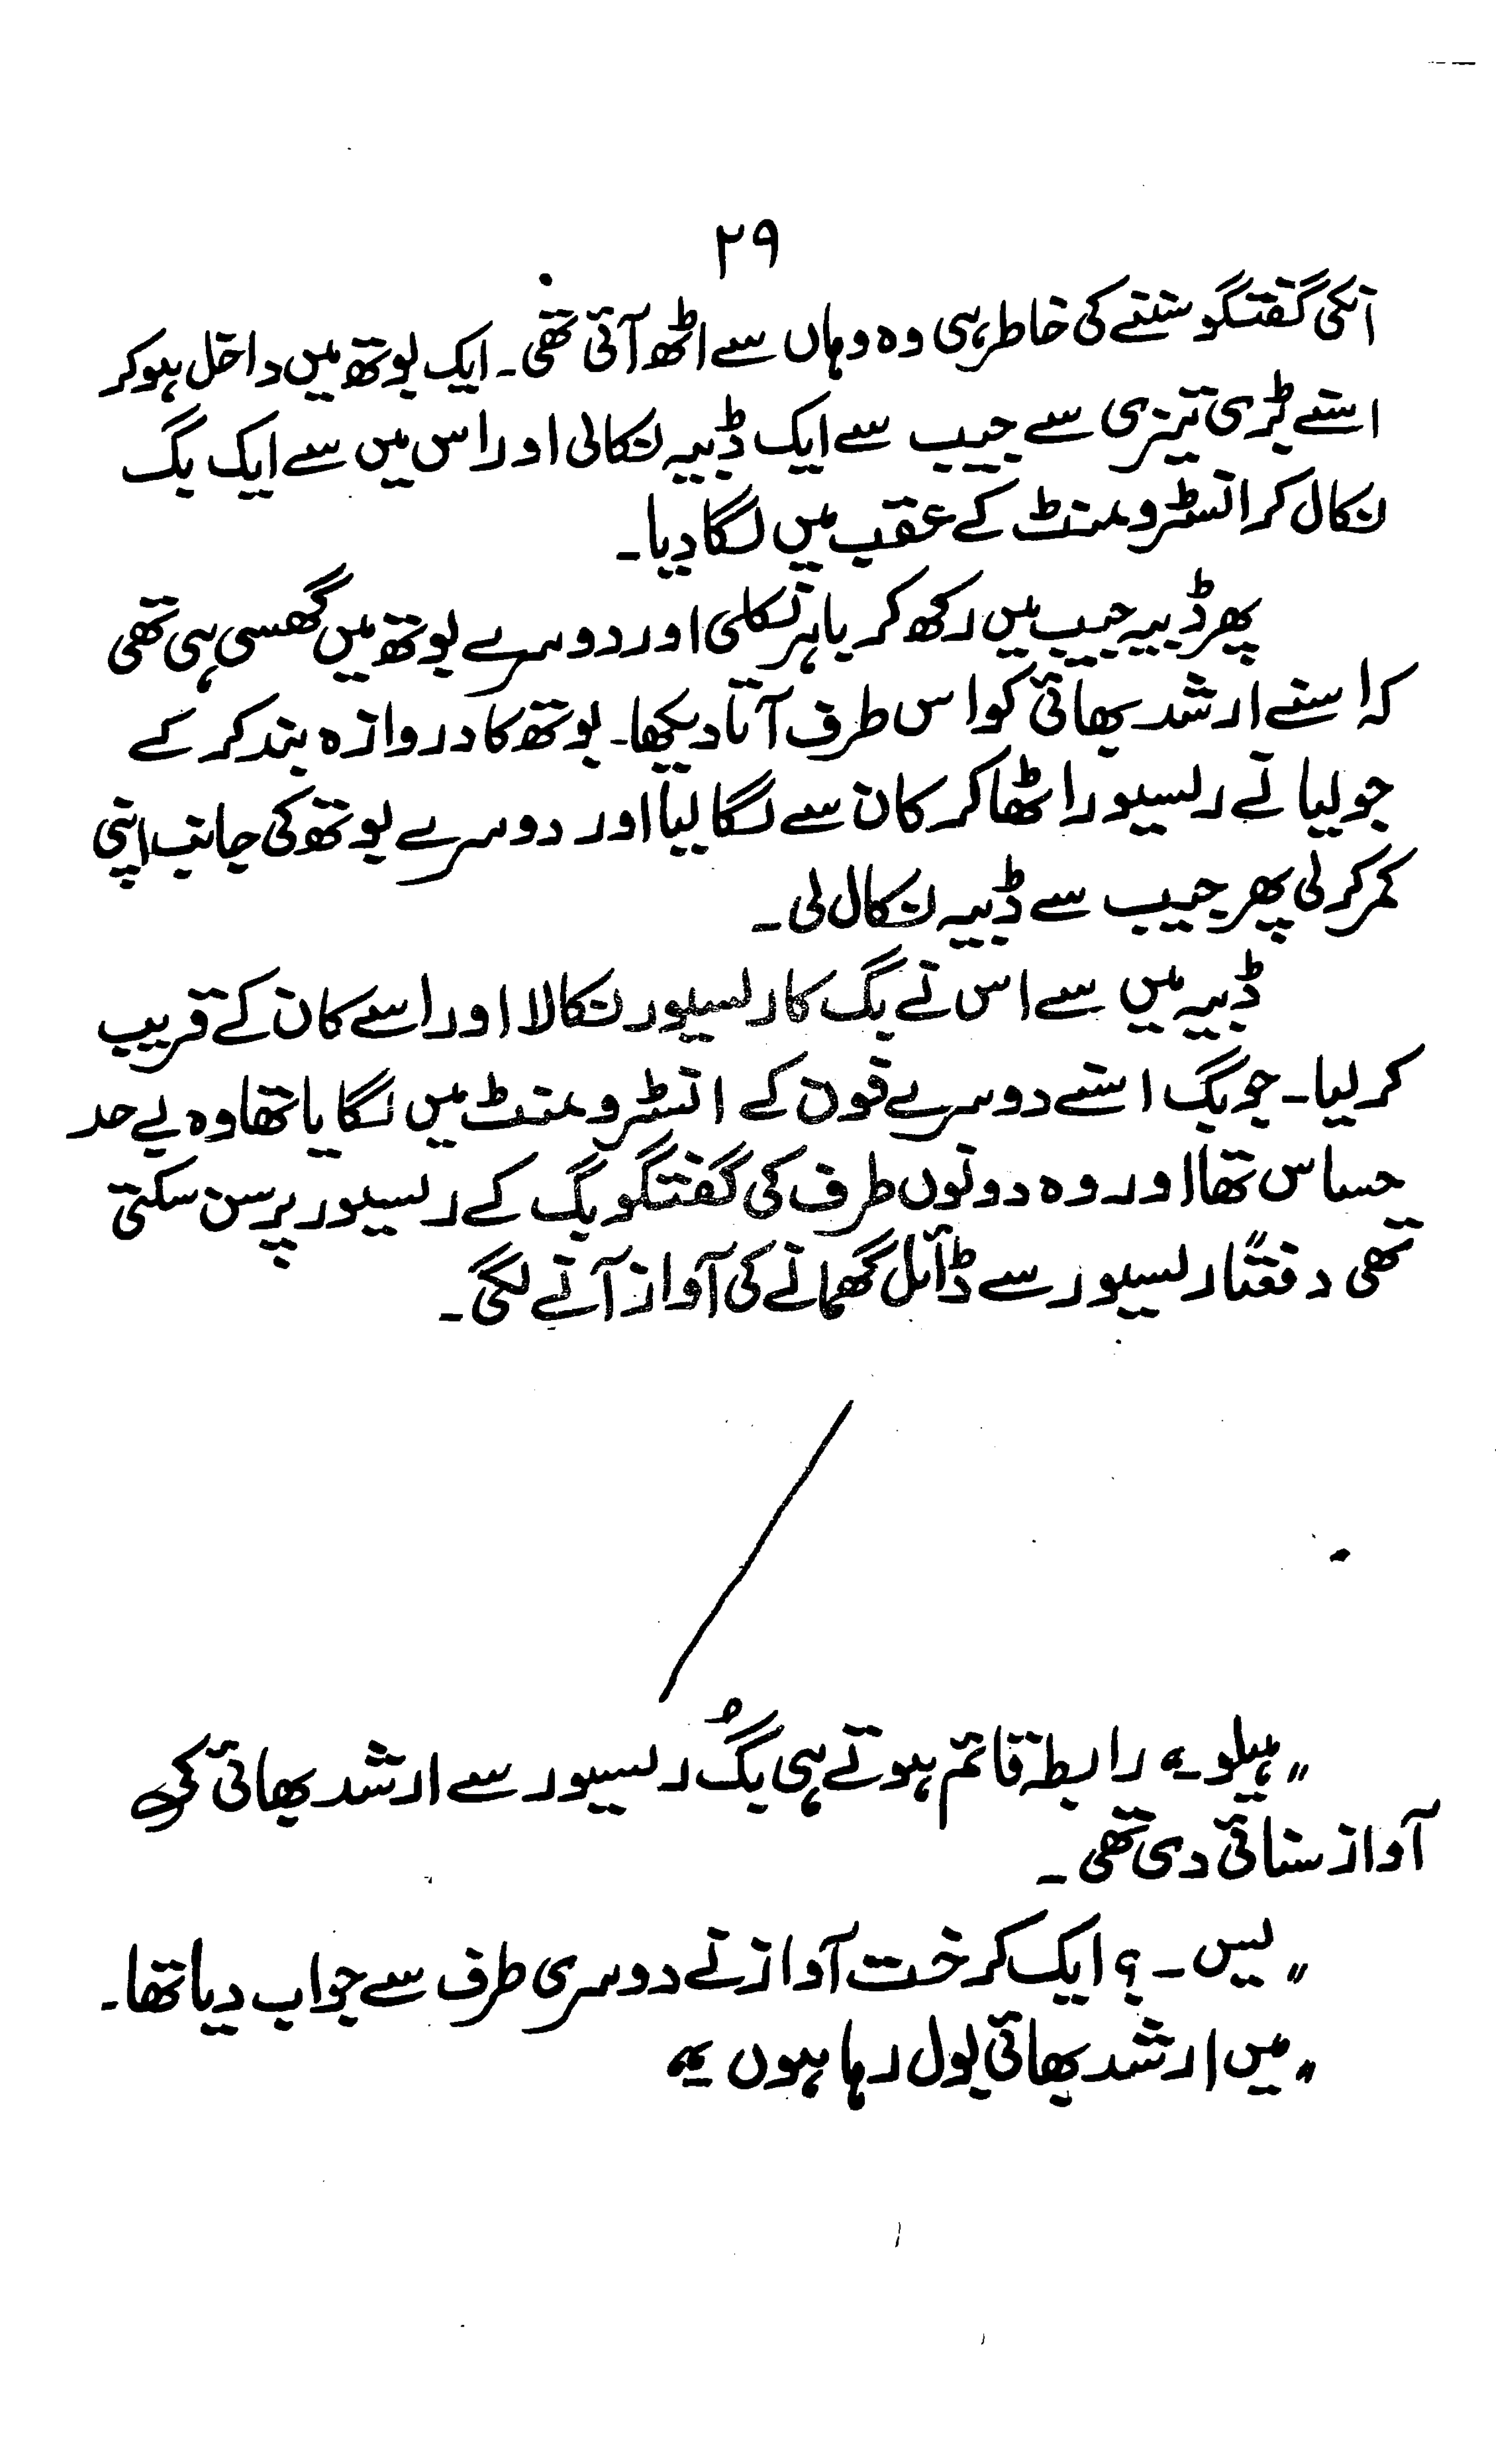 ۲۹
انکی گفتگو سننے کی خاطر ہی وہ وہاں سے اٹھ آئی تھی۔ ایک بوتھ میں داخل ہو کر
اسنے بڑی تیزی سے جیب سے ایک ڈبیہ نکالی اور اس میں سے ایک بگ
نکال کر انسٹرومنٹ کے عقب میں لگا دیا۔
پھر ڈبیہ جیب میں رکھ کر باہر نکلی اور دوسرے بوتھ میں گھسی ہی تھی
کہ اسنے ارشد بھائی کو اس طرف آتا دیکھا۔ بوتھ کا دروازہ بند کر کے
جولیا نے رلسیور اٹھا کر کان سے لگا لیا اور دوسرے بوتھ کی جانب اپنی
کمر کر لی پھر جیب سے ڈبیہ نکال لی۔
ڈبیہ میں سے اس نے بگ کا رلسیور نکالا اور اسے کان کے قریب
کر لیا۔ جو بگ اسنے دوسرے فون کے انسٹرومنٹ میں لگایا تھا وہ بے حد
حساس تھا اور وہ دونوں طرف کی گفتگو بگ کے رلسیور پر سن سکتی
تھی دفعتاً رلسیور سے ڈائل گھمانے کی آواز آنے لگی۔
"ہیلو۔" رابطہ قائم ہوتے ہی بگُ رلسیور سے ارشد بھائی کی
آواز سنائی دی تھی۔
"یس۔؟ ایک کرخت آواز نے دوسری طرف سے جواب دیا تھا۔
"میں ارشد بھائی بول رہا ہوں۔"